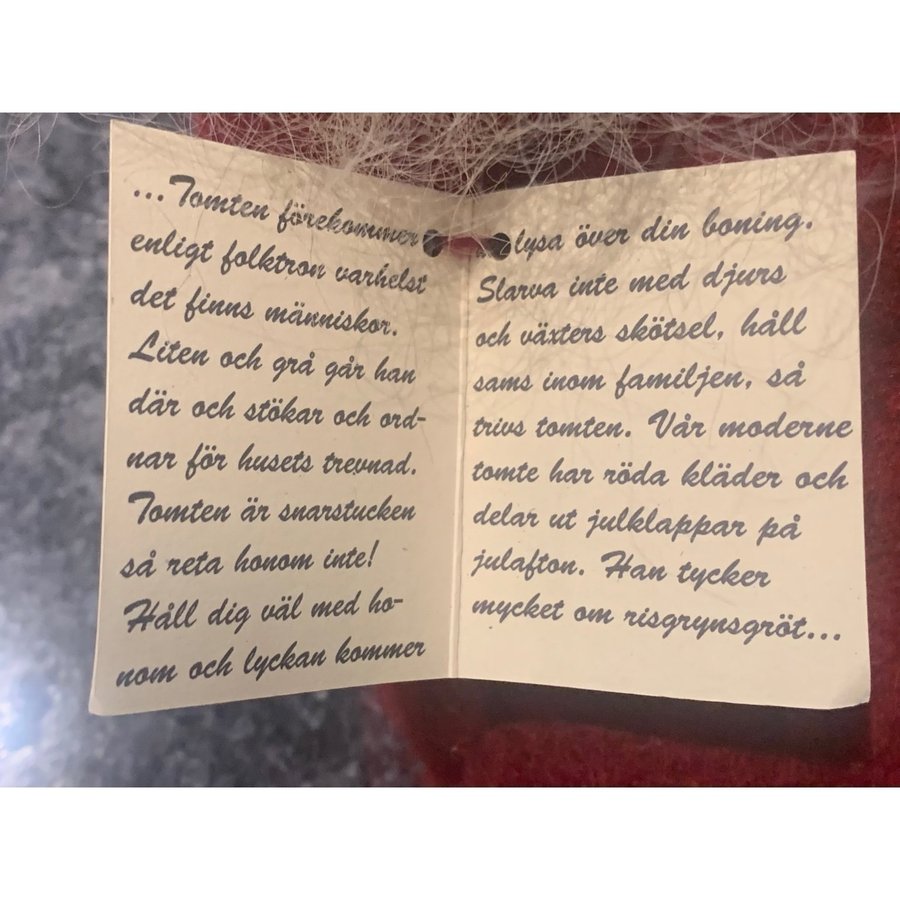 ...Tomten förekommer
enligt folktron varhelst
det finns människor.
Liten och grå går han
där och stökar och ord-
nar för husets trevnad.
Tomten är snarstucken
så reta honom inte!
Håll dig väl med ho-
nom och lyckan kommer
lysa över din boning.
Slarva inte med djurs
och växters skötsel, håll
sams inom familjen, så
trivs tomten. Vår moderne
tomte har röda kläder och
delar ut julklappar på
julafton. Han tycker
mycket om risgrynsgröt...